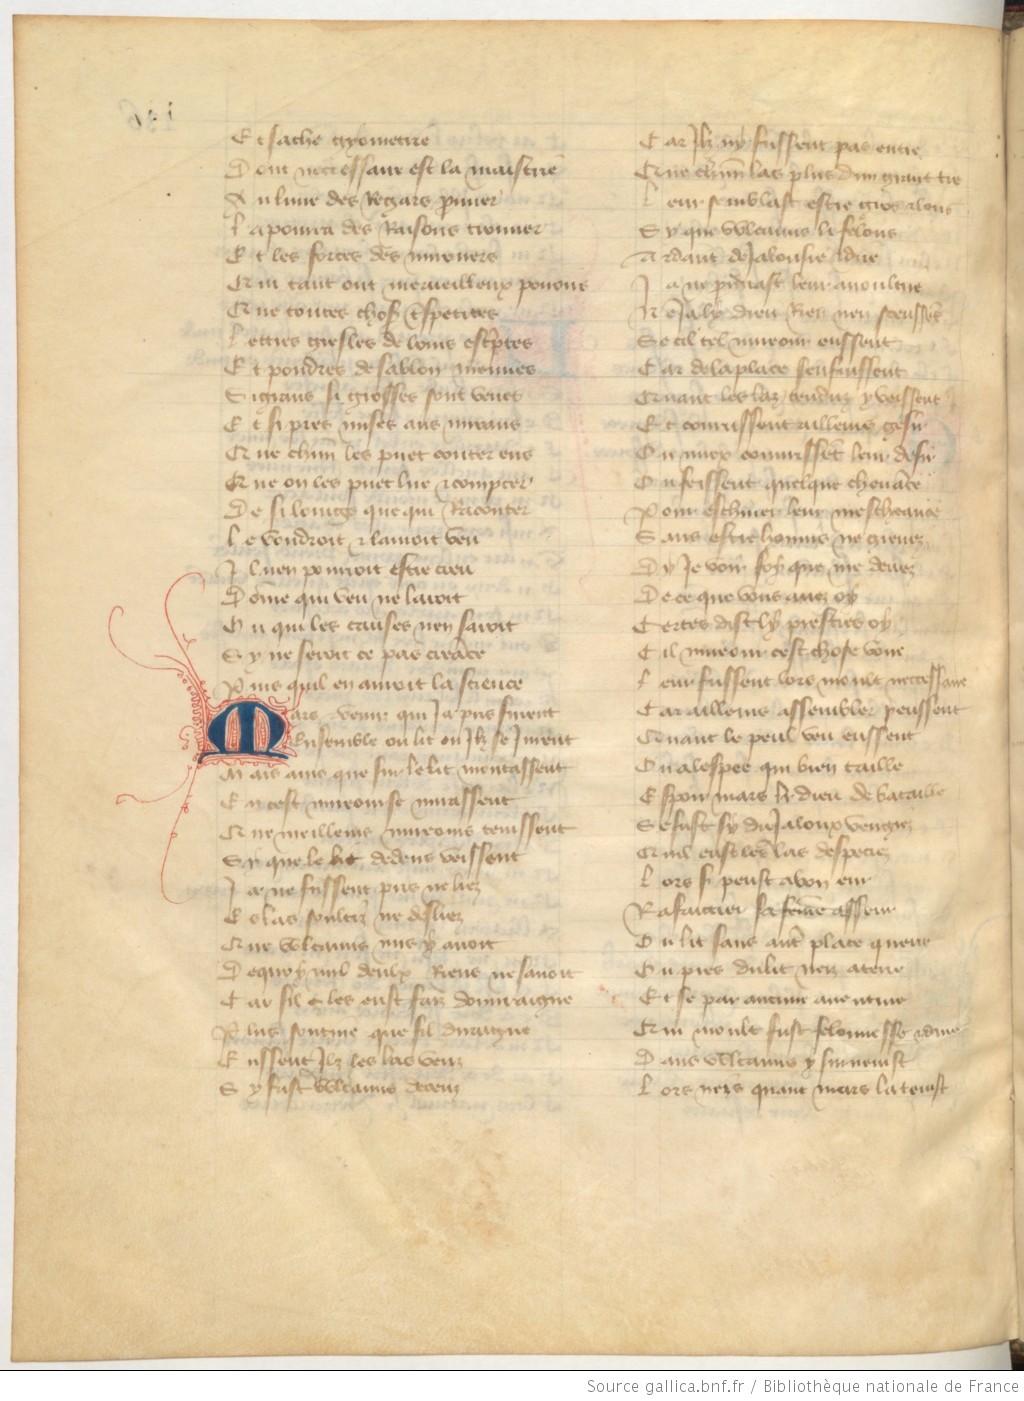 Et sache gyometrie
Dont neccessaire est la maistrie
Au liure des Regars prmier
La pourra des Raisons trouuer
Et les forces des mirouers
Qui tant ont merueilleux pouoirs
Que toutes choses trespetites
Lettres gresles de loins escriptes
Et pouldres de sablon menues
Si grans si grosses sont veues
Et si pres mises aus mirans
Que chun les puet conter ens
Que on les puet lire et compter
De si loings que qui Raconter
Le vendroit et lauroit veu
Il nen pourroit estre creu
Dome qui veu ne lauroit
Ou qui les causes nen sauroit
Sy ne seroit ce pas creance
Puis quil en auroit la science
Mars venus qui Ja pris furent
Ensemble ou lit ou Ilz se Jurent
Mais ains que sur le lit montassent
En cest mirouer se mirassent
Que meilleurs mirouers tenissent
Sy que le lit dedens veissent
Ja ne fussent pris ne liez
Es las soultiz ne desliez
Que Vulcanus mis y auoit
De quoy nul deulx Riens ne sauoit
Car sil les eust faiz douuraigne
Plus soutiue que fil duraigne
Eussent Ilz les las veuz
Sy fust Vulcanus deceuz
Car Ilz ny fussent pas entre
Que chun las plus dun grant tre
Leur semblast estre gros et lons
Sy que Vulcanus li felons
Ardant de Jalousie et dire
Ja ne prouuast leur auoultire
Ne Ja ly dieu Rien nen sceussent
Se cil tel mirouer eussent
Car de la place senfuissent
Quant les laz tenduz y veissent
Et courussent ailleurs gesir
Ou miex couurissent leur desir
Ou feissent quelque cheuance
Pour escheuer leur mescheance
Sans estre honnis ne greuez
Dy Je voir foy que me deuez
De ce que vous auez oy
Certes dist ly prestres oy
Cil mirouer cest chose voire
Leur fussent lors moult neccessaire
Car ailleurs assembler peussent
Quant le peril veu eussent
Ou a lespee qui bien taille
Espoir mars ly dieu de bataille
Se fust sy du Jaloux vengiez
Quil eust les las despeciez
Lors si peust a bon eur
Rafaitier sa feme asseur
Ou lit sans autre place querre
Ou pres du lit neiz a terre
Et se par aucune auenture
Qui moult fust felonnesse et dure
Dans Vulcanus y suruenist
Lors neis quant mars la tenist